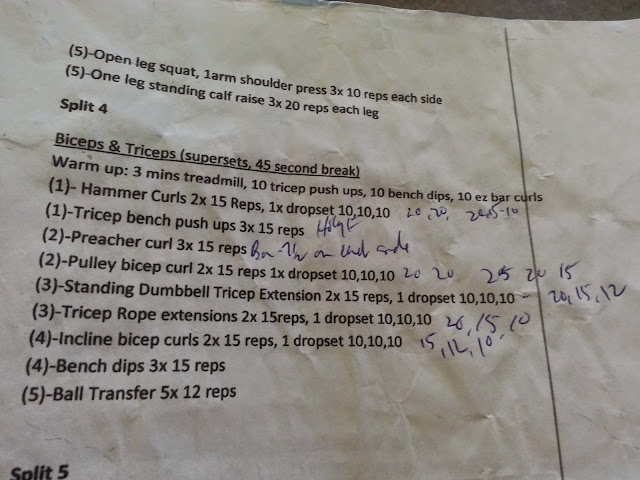 (5)-Open leg squat, 1arm shoulder press 3x 10 reps each side
(5)-One leg standing calf raise 3x 20 reps each leg
Split 4
Biceps & Triceps (supersets, 45 second break)
Warm up: 3 mins treadmill, 10 tricep push ups, 10 bench dips, 10 ez bar curls
(1)- Hammer Curls 2x 15 Reps, 1x dropset 10,10,10 20, 20,
(1)-Tricep bench push ups 3x 15 reps
(2)-Preacher curl 3x 15 reps
(2)-Pulley bicep curl 2x 15 reps 1x dropset 10,10,10 20 20 25 20 15
(3)-Standing Dumbbell Tricep Extension 2x 15 reps, 1 dropset 10,10,10 - 20, 15, 12
(3)-Tricep Rope extensions 2x 15reps, 1 dropset 10,10,10 20, 15, 10
(4)-Incline bicep curls 2x 15 reps, 1 dropset 10,10,10 15, 12, 10
(4)-Bench dips 3x 15 reps
(5)-Ball Transfer 5x 12 reps
Split 5